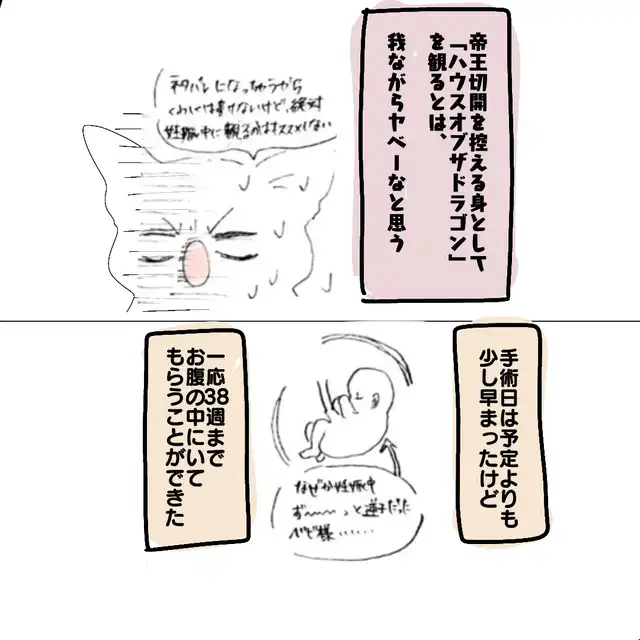 帝王切開を控える身として
「ハウスオブザドラゴン」
を観るとは、
我ながらヤベーなと思う
ネタバレになっちゃうから
くわしくは書けないけど、絶対
妊娠中に観るのはオススメしない
手術日は予定よりも
少し早まったけど
なぜか妊娠中
ず〜〜〜っと逆子だった
ベビ様……
一応38週まで
お腹の中にいて
もらうことができた